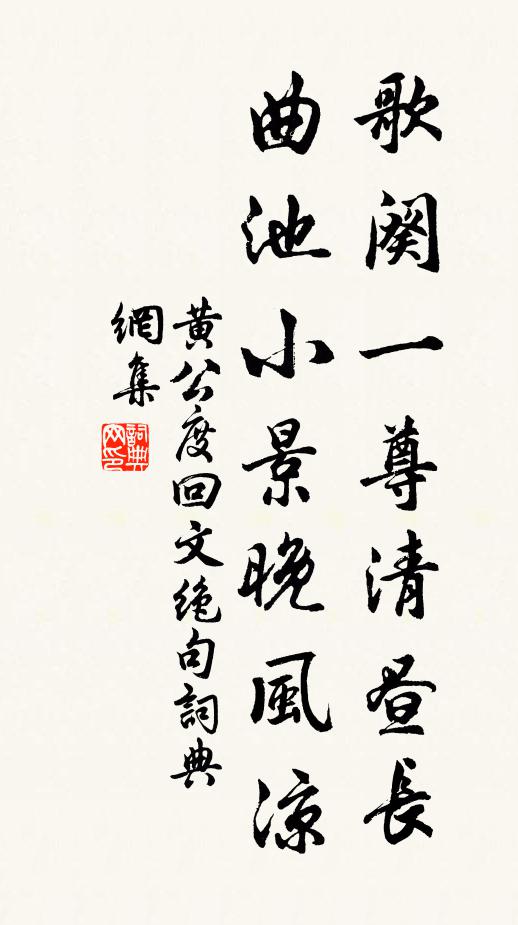 歌闋一尊清昼長
曲池小景晚風涼
黄公度回文绝句詞典
網集
詞典
网印